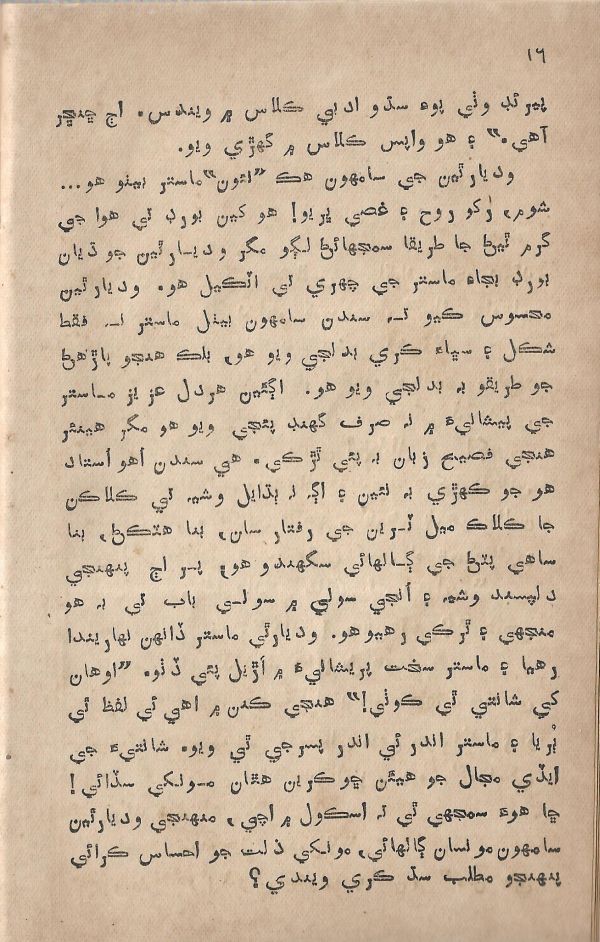 ١٦
پيرئڊ وٺي پوءِ سڌو ادبي ڪلاس ۾ ويندس. اڄ ڇنڇر
آهي.” ۽ هو واپس ڪلاس ۾ گهڙي ويو.
وديارٿين جي سامهون هڪ “نئون” ماستر بيٺو هو...
شوم، رکو روح ۽ غصي ڀريو! هو کين بورڊ تي هوا جي
گرم ٿيڻ جا طريقا سمجهائڻ لڳو مگر وديارٿين جو ڌيان
بورڊ بجاءِ ماستر جي چهري تي اٽڪيل هو. وديارٿين
محسوس ڪيو تہ سندن سامهون بيٺل ماستر نہ فقط
شڪل ۽ سڀاءَ ڪري بدلجي ويو هو، بلڪ هنجو پاڙهڻ
جو طريقو بہ بدلجي ويو هو. اڳئين هردل عزيز ماستر
جي پيشاني۽ ۾ نہ صرف گهنڊ پئجي ويو هو مگر هينئر
هنجي فصيح زبان بہ پئي ٿڙڪي. هي سندن اهو اُستاد
هو جو ڪهڙي بہ نئين ۽ اڳ نہ ٻڌايل وشيہ تي ڪلاڪن
جا ڪلاڪ ميل ٽرين جي رفتار سان، بنا هٽڪڻ، بنا
ساهي پٽڻ جي ڳالهائي سگهندو هو، پر اڄ پنهنجي
دلپسند وشيہ ۽ اُنجي سولي ۾ سولي باب تي بہ هو
منجهي ۽ ٿڙڪي رهيو هو. وديارٿي ماستر ڏانهن نهاريندا
رهيا ۽ ماستر سخت پريشاني۽ ۾ اَڙيل پئي ڏٺو. “اوهان
کي شانتي ٿي کوٽي!” هنجي ڪنن ۾ اهي ئي لفظ ٿي
ٻُريا ۽ ماستر اندر ئي اندر پسرجي ٿي ويو. شانتي۽ جي
ايڏي مجال جو هيئن ڇوڪرين هٿان مونکي سڏائي!
ڇا هوءَ سمجهي ٿي تہ اسڪول ۾ اچي، منهنجي وديارٿين
سامهون مونسان ڳالهائي، مونکي ذلت جو احساس ڪرائي
پنهنجو مطلب سڌ ڪري ويندي؟